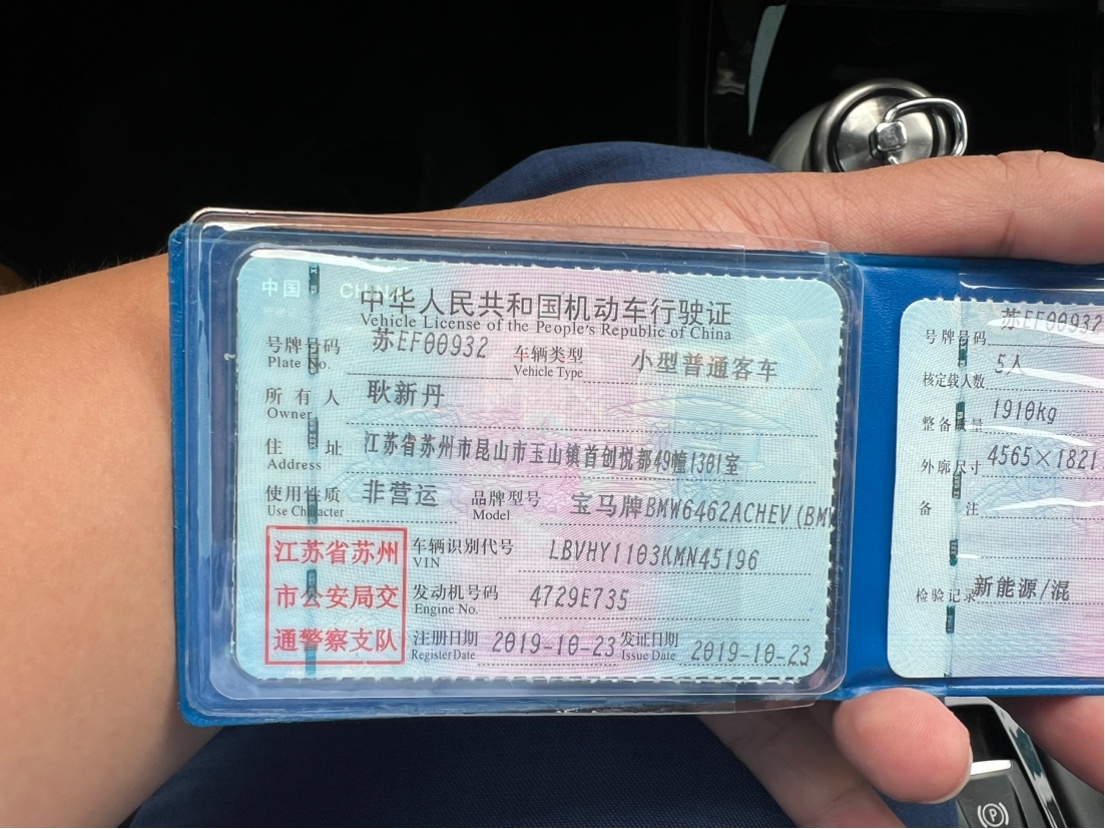 中国 CHINA
中华人民共和国机动车行驶证
Vehicle License of the People's Republic of China
号牌号码 苏EF00932 车辆类型 小型普通客车
Plate No. Vehicle Type
所有人 耿新丹
Owner
住址 江苏省苏州市昆山市玉山镇首创悦都49幢1301室
Address
使用性质 非营运 品牌型号 宝马牌BMW6462ACHEV(BMW
Use Character Model
江苏省苏州
市公安局交
通警察支队
车辆识别代号 LBVHY1103KMN45196
VIN
发动机号码 4729E735
Engine No.
注册日期 2019-10-23 发证日期 2019-10-23
Register Date Issue Date
号牌号码 苏EF00932
核定载人数 5人
整备质量 1910kg
外廓尺寸 4565×1821
备注
检验记录 新能源/混
P